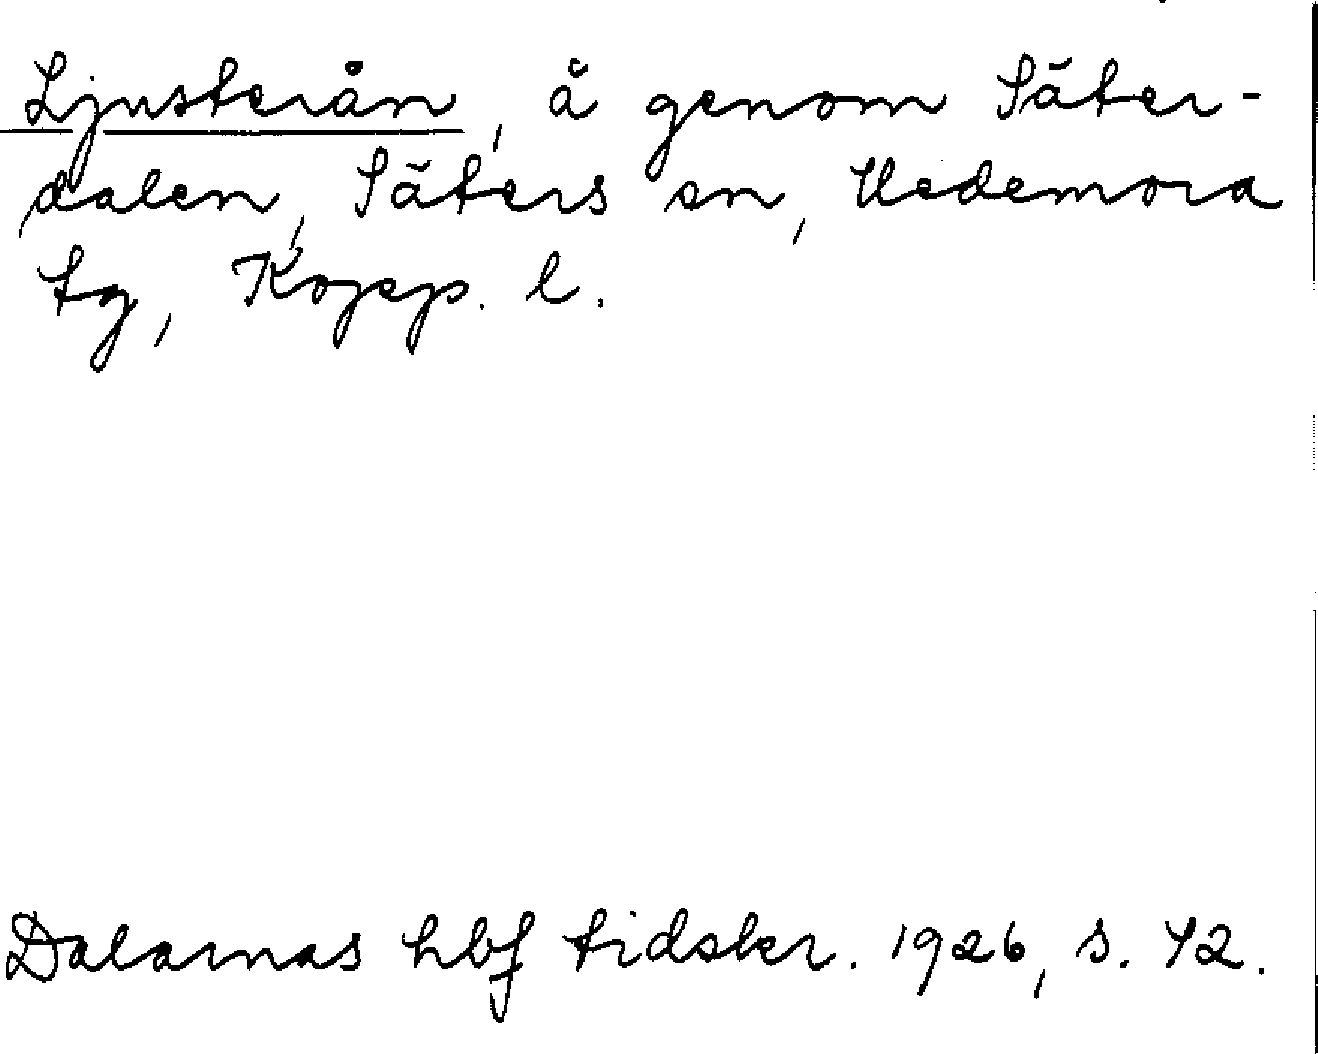 Ljusterån, å genom Säter-
dalen, Säters sn, Hedemora
tg, Kopp. l.
Dalarnas hbf tidskr. 1926, s. 42.